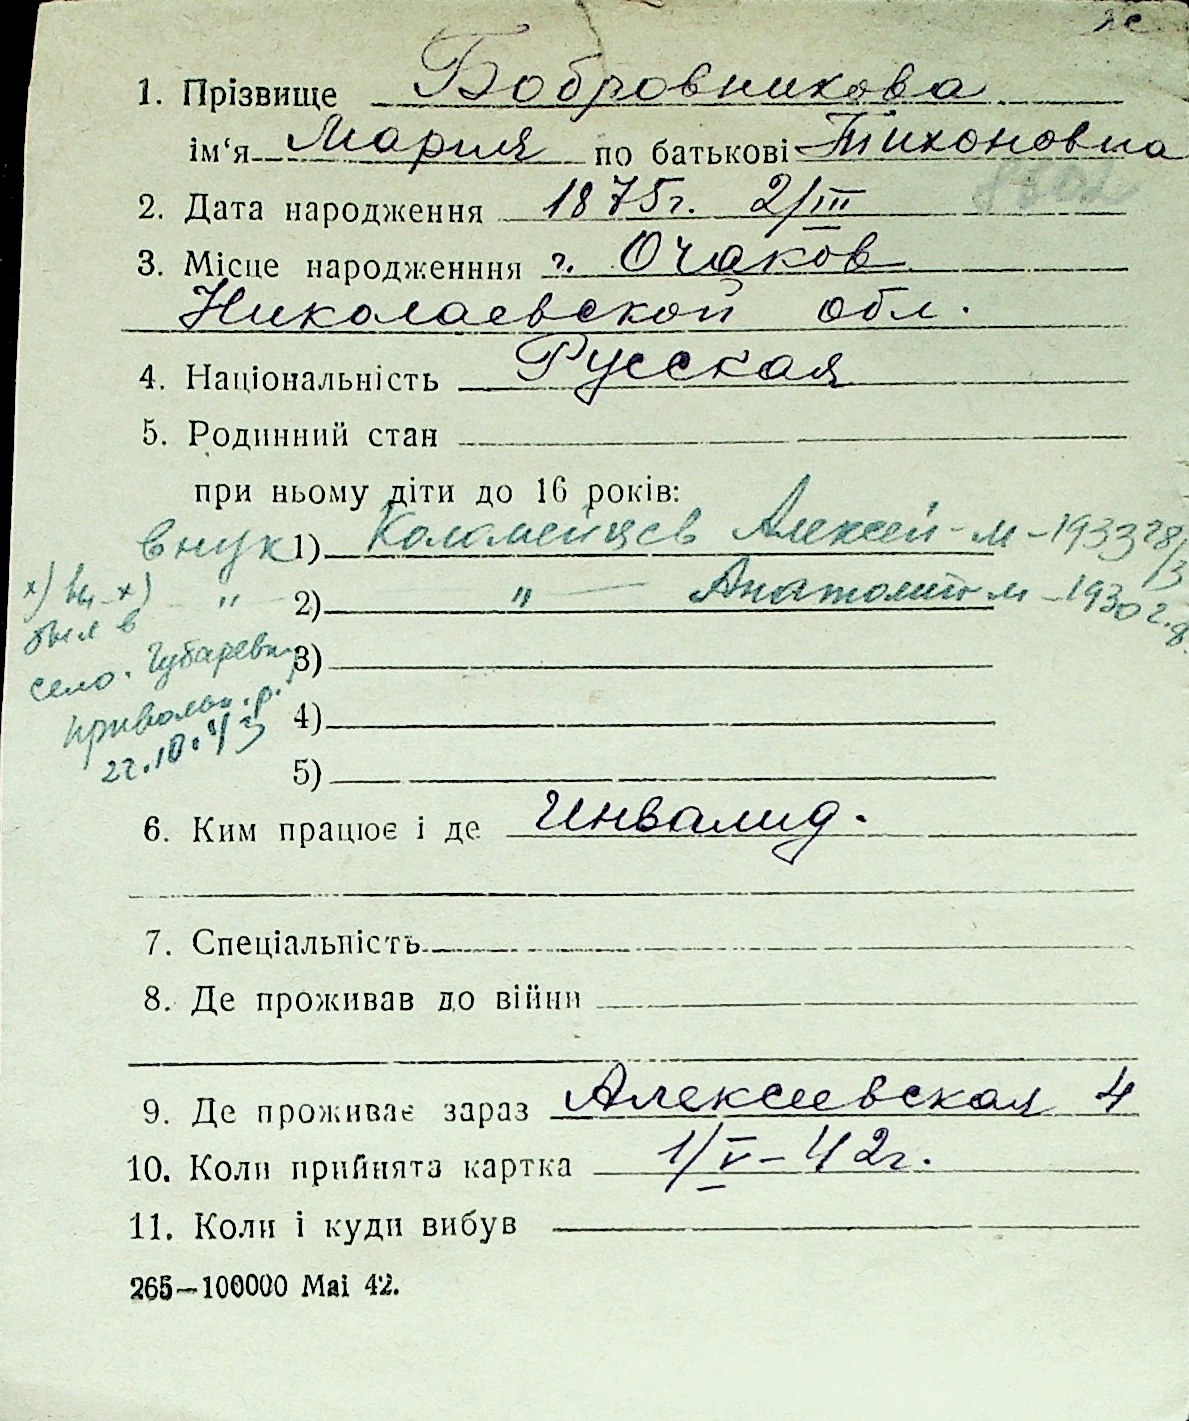 жс
1. Прізвище Бобровникова
ім‘я Мария по батькові Тихоновна
2. Дата народження 1875г. 2/III
3. Місце народженння г. Очаков
Николаевской обл.
4. Національність Русская
5. Родинний стан
при ньому діти до 16 років:
внук 1) Коломейцев Алексей - м - 1933 28/3
х) вы-х) " 2) " Анатолий м - 1930 г.р.
был в
3)
село. Губаревк.
4)
Привольн. р.
22.10.43
5)
6. Ким працює і де Инвалид.
7. Спеціальність
8. Де проживав до війни
9. Де проживає зараз Алексеевская 4
10. Коли прийнята картка 1/V - 42г.
11. Коли і куди вибув
265—100000 Mai 42.